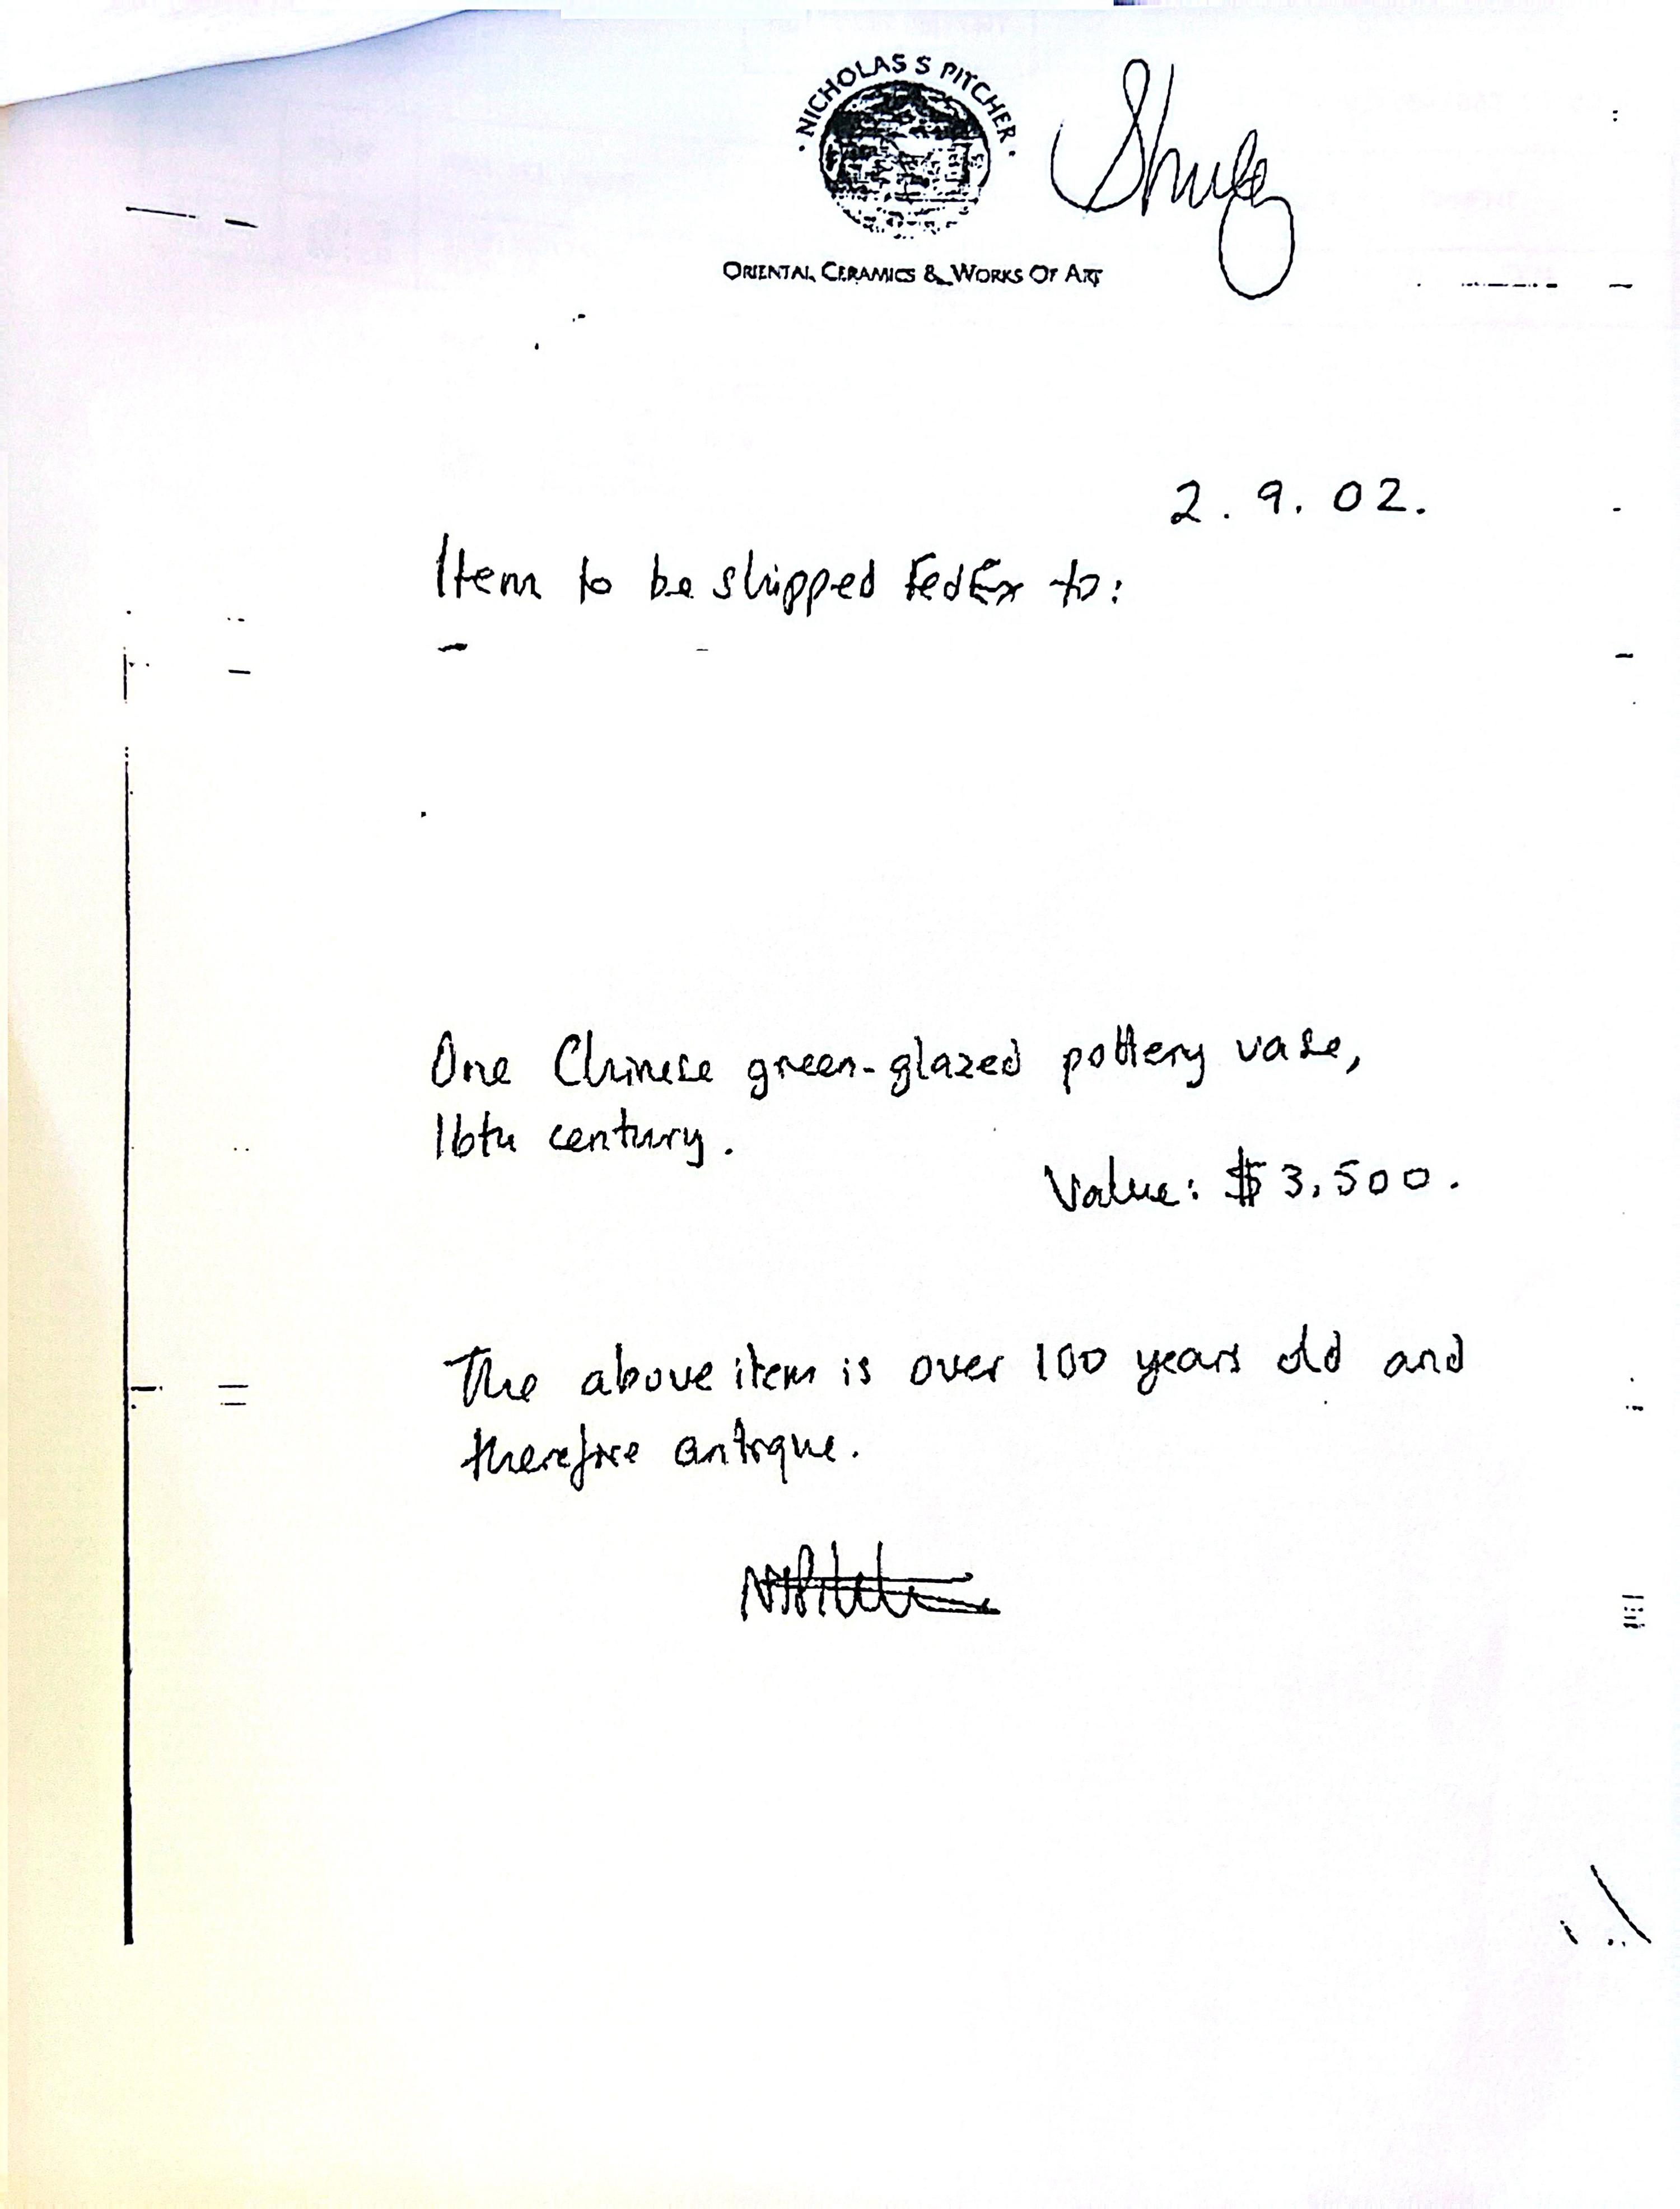 · NICHOLAS S PITCHER ·
ORIENTAL CERAMICS & WORKS OF ART
2.9.02.
Item to be shipped FedEx to:
One Chinese green-glazed pottery vase,
16th century.
Value: $3,500.
The above item is over 100 years old and
therefore antique.